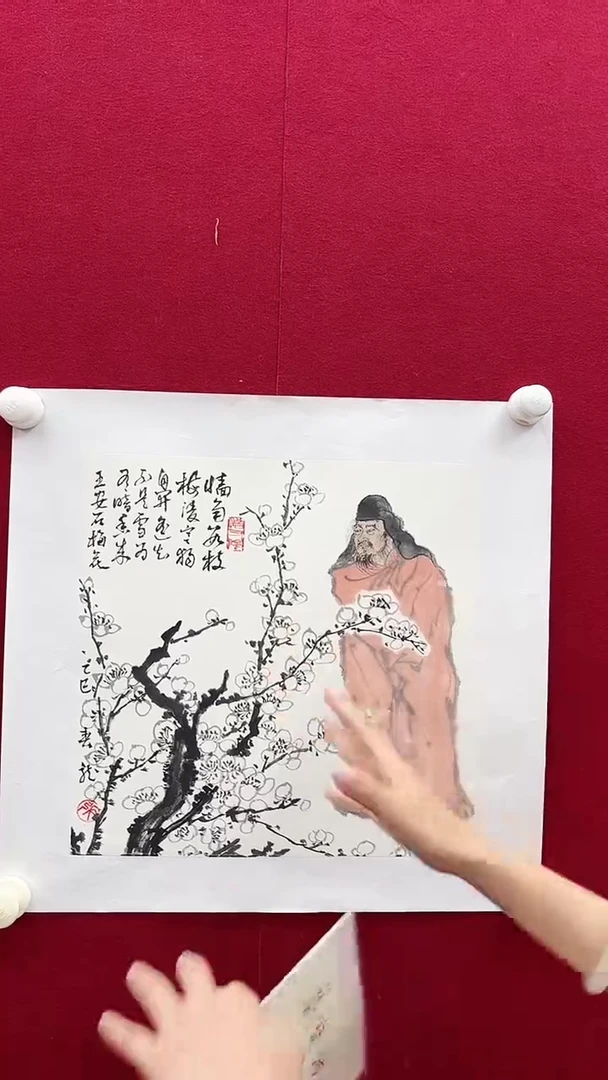 墙角数枝
梅凌寒独
自开遥知
不是雪为
有暗香来
王安石梅花
乙巳
春龙